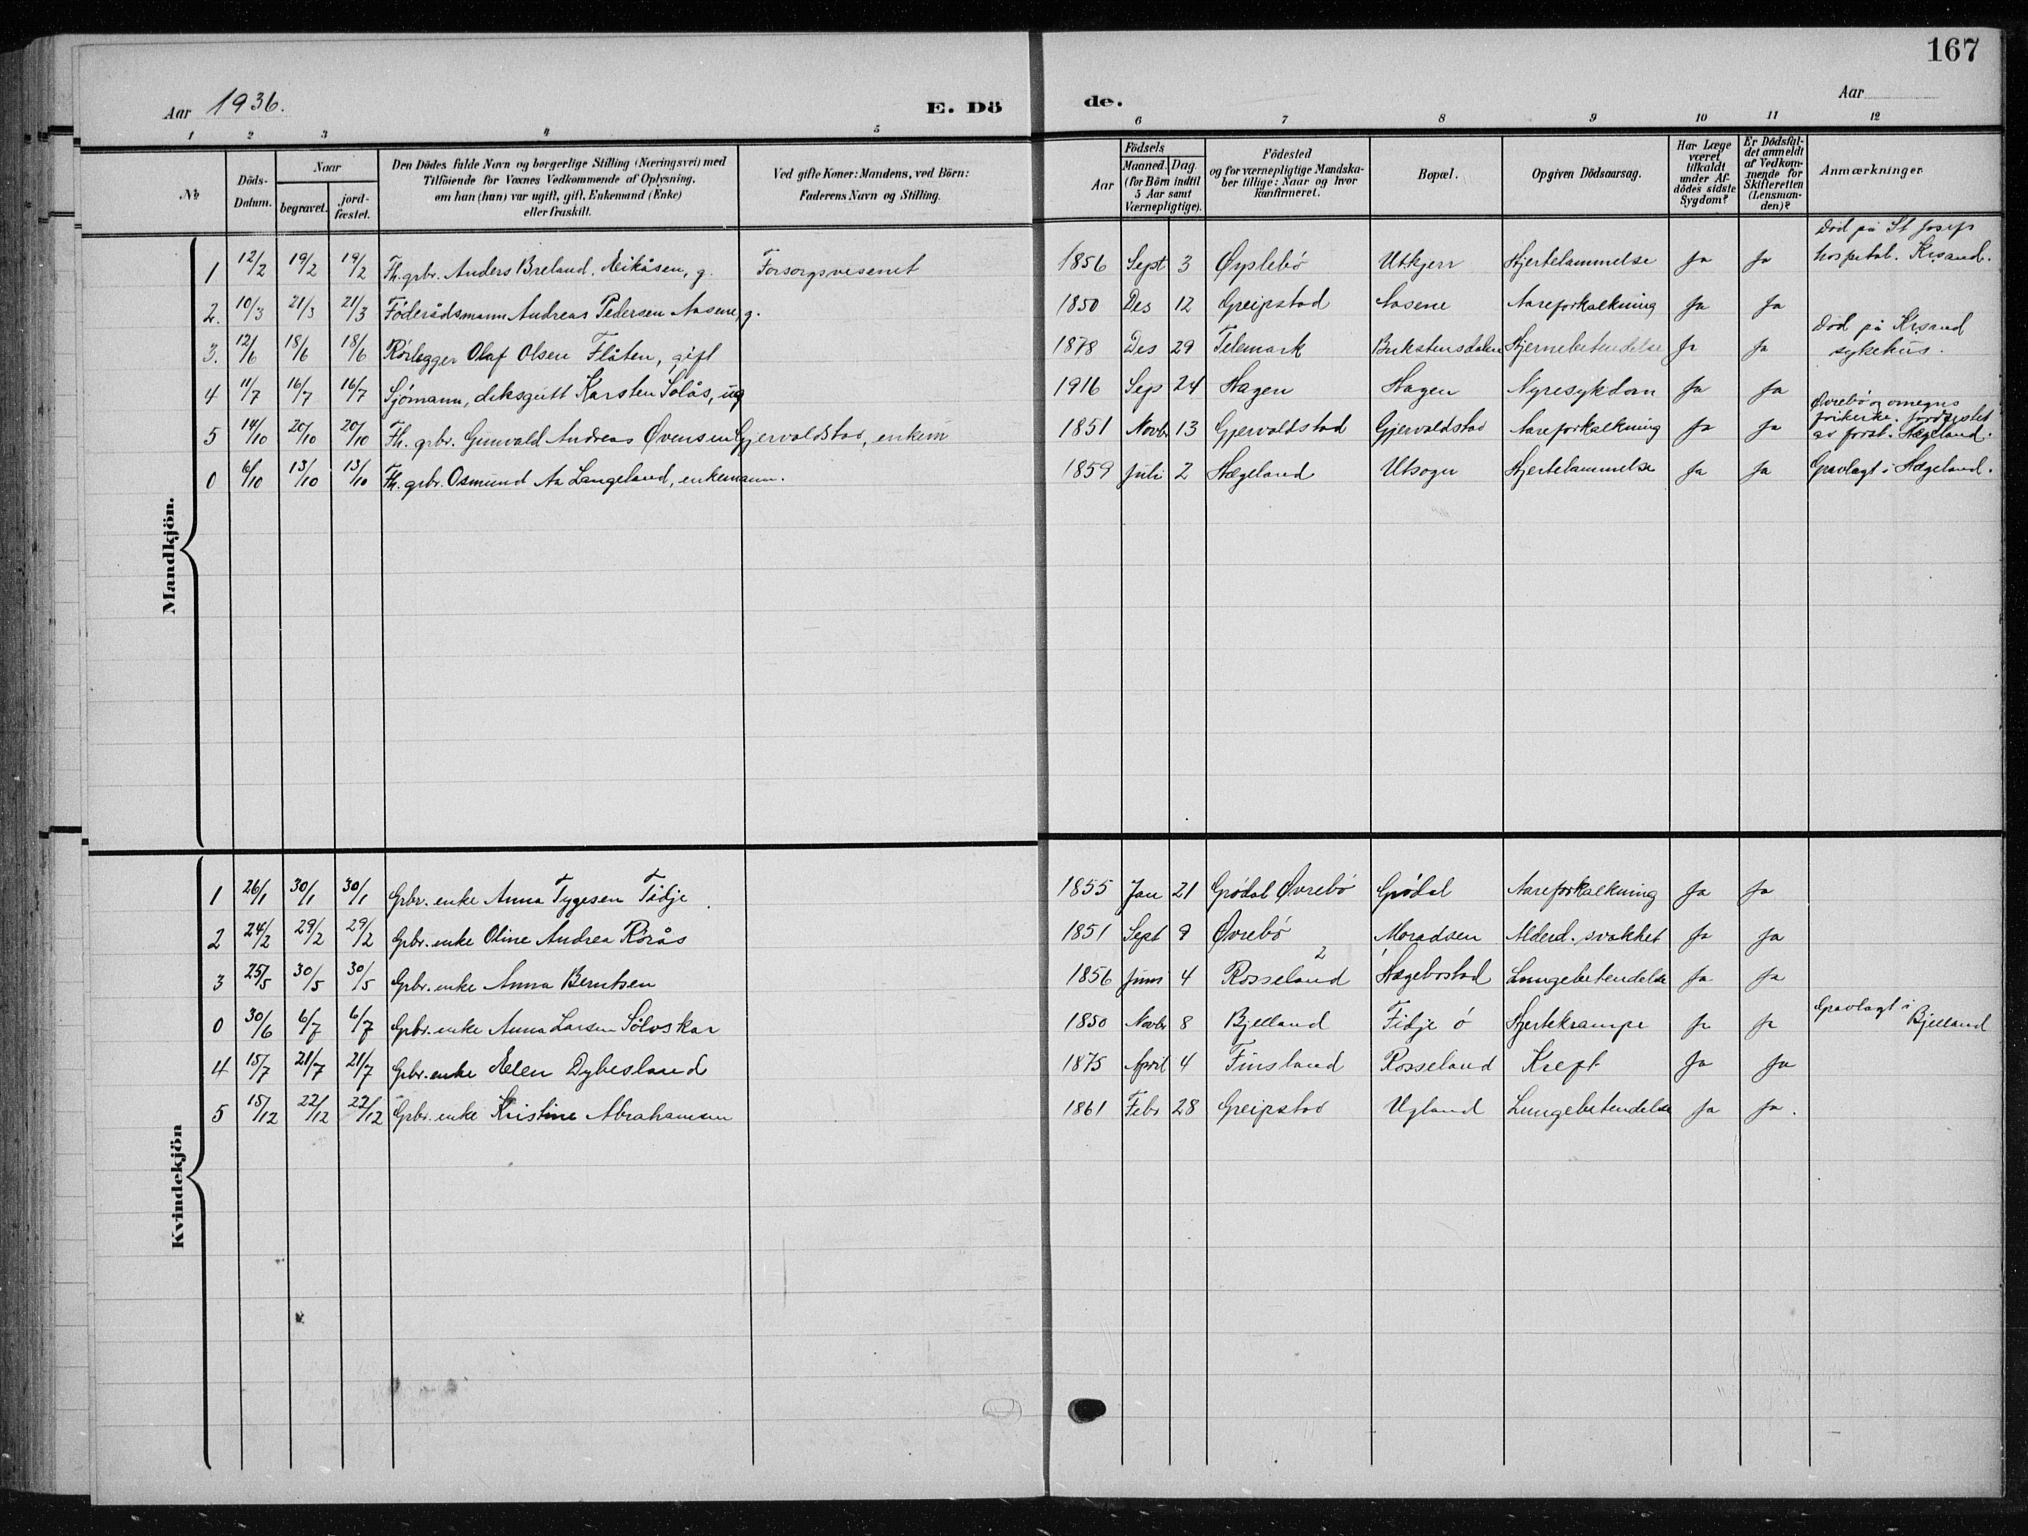 167
Aar 1936. E. Dö de. Aar
1 2 3 4 5 6 7 8 9 10 11 12
No Döds-Datum. Naar begravet. jord-fæstet. Den Dödes fulde Navn og borgerlige Stilling (Næringsvei) med Tilföiende for Voxnes Vedkommende af Oplysning, om han (hun) var ugift, gift, Enkemand (Enke) eller fraskilt. Ved gifte Koner: Mandens, ved Börn: Faderens Navn og Stilling. Födsels Aar Maaned. Dag. (for Börn indtil 5 Aar samt Værnepligtige). Födested og for værnepligtige Mandskaber tillige: Naar og hvor konfirmeret. Bopæl. Opgiven Dödsaarsag. Har Læge været tilkaldt under Afdödes sidste Sygdom? Er Dödsfaldet anmeldt af Vedkommende for Skifteretten (Lensmanden)? Anmærkninger
Mandkjön.
1 12/2 19/2 19/2 Fh. grbr. Anders Breland, Meikåsen, g. Forsorgsvesenet 1856 Sept 3 Øyslebø Utkjerr Hjertelammelse Ja Ja Död på St Josefs hospital. Krsand.
2. 10/3 21/3 21/3 Föderådsmann Andreas Pedersen Aasene, g. 1850 Des 12 Greipstad Aasene Aareforkalkning Ja Ja
3. 12/6 18/6 18/6 Rørlegger Olaf Olsen Flåten, gift 1878 Des 29 Telemark Bukstensdalen Hjernebetendelse Ja Ja Död på Krsand sykehus.
4 11/7 16/7 16/7 Sjømann, deksgutt Karsten Solås, ug 1916 Sep 24 Hagen Hagen Nyresykdom Ja Ja
5 14/10 20/10 20/10 Fh. grbr. Gunvald Andreas Øvensen Gjervoldstad, enkem 1851 Novbr 13 Gjervoldstad Gjervoldstad Aareforkalkning Ja Ja Øvrebø og omegns frikirke. Jordfestet av forst. Hægeland.
0 6/10 13/10 13/10 Fh. grbr. Osmund Aa Langeland, enkemann. 1859 Juli 2 Hægeland Utsogn Hjertelammelse Ja Ja Gravlagt i Hægeland.
Kvindekjön
1 26/1 30/1 30/1 Grbr. enke Anna Tygesen Fidje 1855 Jan 21 Grødal Øvrebö Grödal Aareforkalkning Ja Ja
2 24/2 29/2 29/2 Grbr. enke Oline Andrea Rörås 1851 Sept 9 Øvrebö Moradsen Alderd. svakhet Ja Ja
3 25/5 30/5 30/5 Grbr. enke Anna Berntsen 1856 Juni 4 Rosseland Hægebostad Lungebetendelse Ja Ja
0 30/6 6/7 6/7 Grbr. enke Anna Larsen Sölvskar 1850 Novbr 8 Bjelland Fidje ö Hjertekrampe Ja Ja Gravlagt i Bjelland
4 15/7 21/7 21/7 Grbr. enke Elen Dybesland 1875 April 4 Finsland Rosseland Kreft Ja Ja
5 15/12 22/12 22/12 Grbr. enke Kristine Abrahamsen 1861 Febr 28 Greipstad Ugland Lungebetendelse Ja Ja.